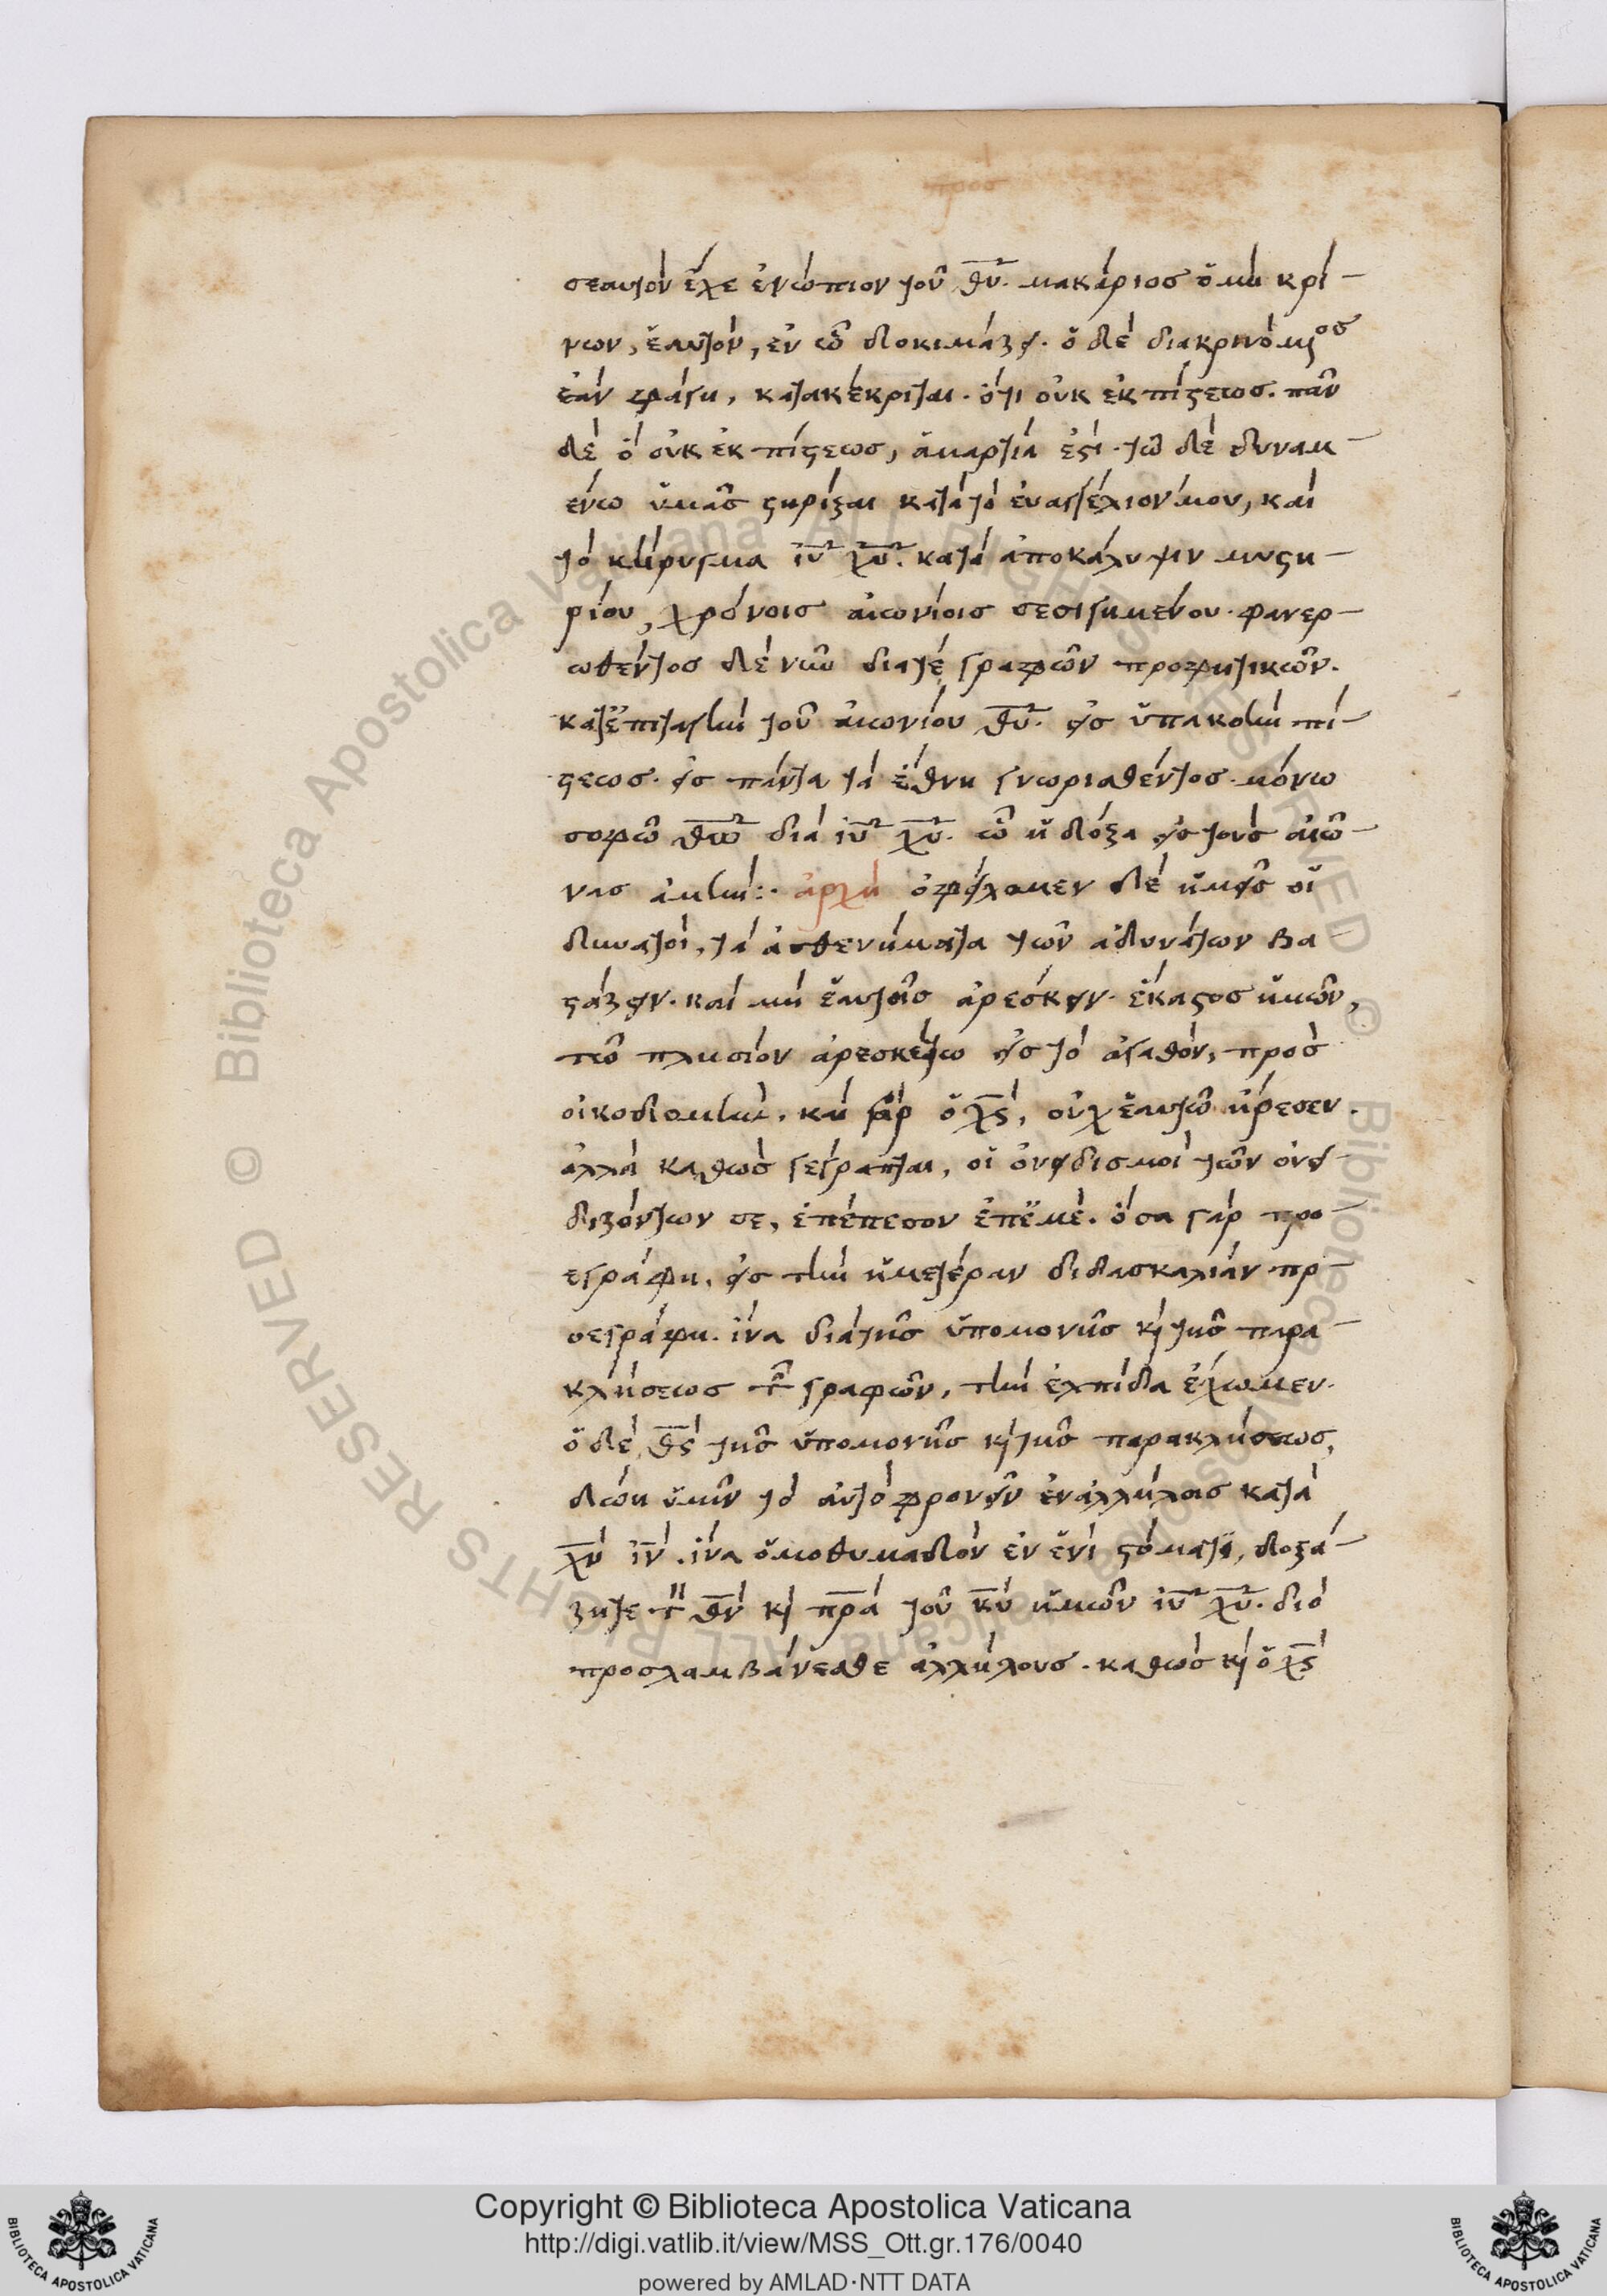 σεαυτὸν ἔχε ἐνώπιον τοῦ θυ̅. μακάριος ὁ μὴ κρί-
νων, ἑαυτὸν, ἐν ᾧ δοκιμάζει. ὁ δὲ διακρινόμενος
ἐὰν φάγη, κατακέκριται. ὅτι οὐκ ἐκ πίστεως. πᾶν
δὲ ὃ οὐκ ἐκ πίστεως, ἁμαρτία ἐστί. τῶ δὲ δυναμ-
ένω ὑμᾶς στηρίξαι κατὰ τὸ ἐυαγγέλιον μου, καὶ
τὸ κήρυγμα ιυ̅ χυ̅. κατὰ ἀποκάλυψιν μυστη-
ρίου, χρόνοις αἰωνίοις σεσιγημένου. φανερ-
ωθέντος δὲ νῦν διατὲ γραφῶν προφητικῶν.
κατ' ἐπιταγὴν τοῦ αἰωνίου θυ̅. εἰς ὑπακοὴν πί-
στεως. εἰς πάντα τὰ ἔθνη γνωρισθέντος. μόνω
σοφῶ θω̅ διὰ ιυ̅ χυ̅. ὧ ἡ δόξα εἰς τοὺς αἰῶ-
νας ἀμήν:. ἀρχὴ ὀφείλομεν δὲ ἡμεῖς οἱ
δυνατοὶ, τὰ ἀσθενήματα τῶν ἀδυνάτων βα-
στάζειν. καὶ μὴ ἑαυτοῖς ἀρέσκειν. ἕκαστος ἡμῶν,
τῶ πλησίον ἀρεσκέτω εἰς τὸ ἀγαθὸν, πρὸς
οἰκοδομήν. καὶ γὰρ ὁ χς̅, οὐχ ἑαυτῶ ἤρεσεν.
ἀλλὰ καθὼς γέγραπται, οἱ ὀνειδισμοὶ τῶν ὀνει-
διζόντων σε, ἐπέπεσον ἐπ' ἐμέ. ὅσα γὰρ προ-
εγράφη, εἰς τὴν ἡμετέραν διδασκαλίαν πρ-
οεγράφη. ἵνα διὰ τῆς ὑπομονῆς κ τῆς παρα-
κλήσεως τ γραφῶν, τὴν ἐλπίδα ἔχωμεν.
ὁ δὲ θς̅ τῆς ὑπομονῆς κ τῆς παρακλήσεως,
δώη ὑμῖν τὸ αὐτὸ φρονεῖν ἐν ἀλλήλοις κατὰ
χν̅ ιν̅. ἵνα ὁμοθυμαδὸν ἐν ἑνὶ στόματι, δοξά-
ζητε τ θν̅ κ πρ̅α τοῦ κυ̅ ἡμῶν ιυ̅ χυ̅. διὸ
προσλαμβάνεσθε ἀλλήλους. καθὼς κ ὁ χς̅
Copyright © Biblioteca Apostolica Vaticana
http://digi.vatlib.it/view/MSS_Ott.gr.176/0040
powered by AMLAD·NTT DATA